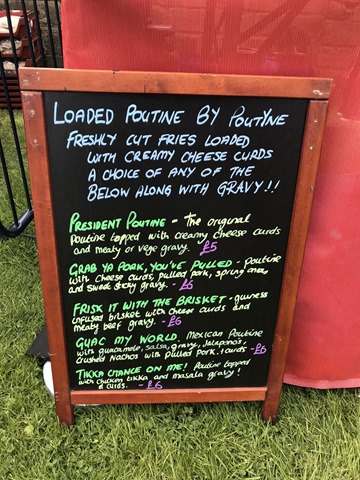 LOADED POUTINE BY POUTYNE
FRESHLY CUT FRIES LOADED
WITH CREAMY CHEESE CURDS
A CHOICE OF ANY OF THE
BELOW ALONG WITH GRAVY!!
PRESIDENT POUTINE - The original
Poutine topped with creamy cheese curds
and meaty or vege gravy. £5
GRAB YA PORK, YOU'VE PULLED - Poutine
with cheese curds, pulled pork, spring onion
and sweet sticky gravy. - £6
FRISK IT WITH THE BRISKET - guinness
infused brisket with cheese curds and
meaty beef gravy. - £6
GUAC MY WORLD. Mexican Poutine
with guacamole, salsa, gravy, Jalapano's,
crushed nachos with pulled pork. + curds - £6
TIKKA CHANCE ON ME! Poutine topped
with chicken tikka and masala gravy!
& curds. - £6